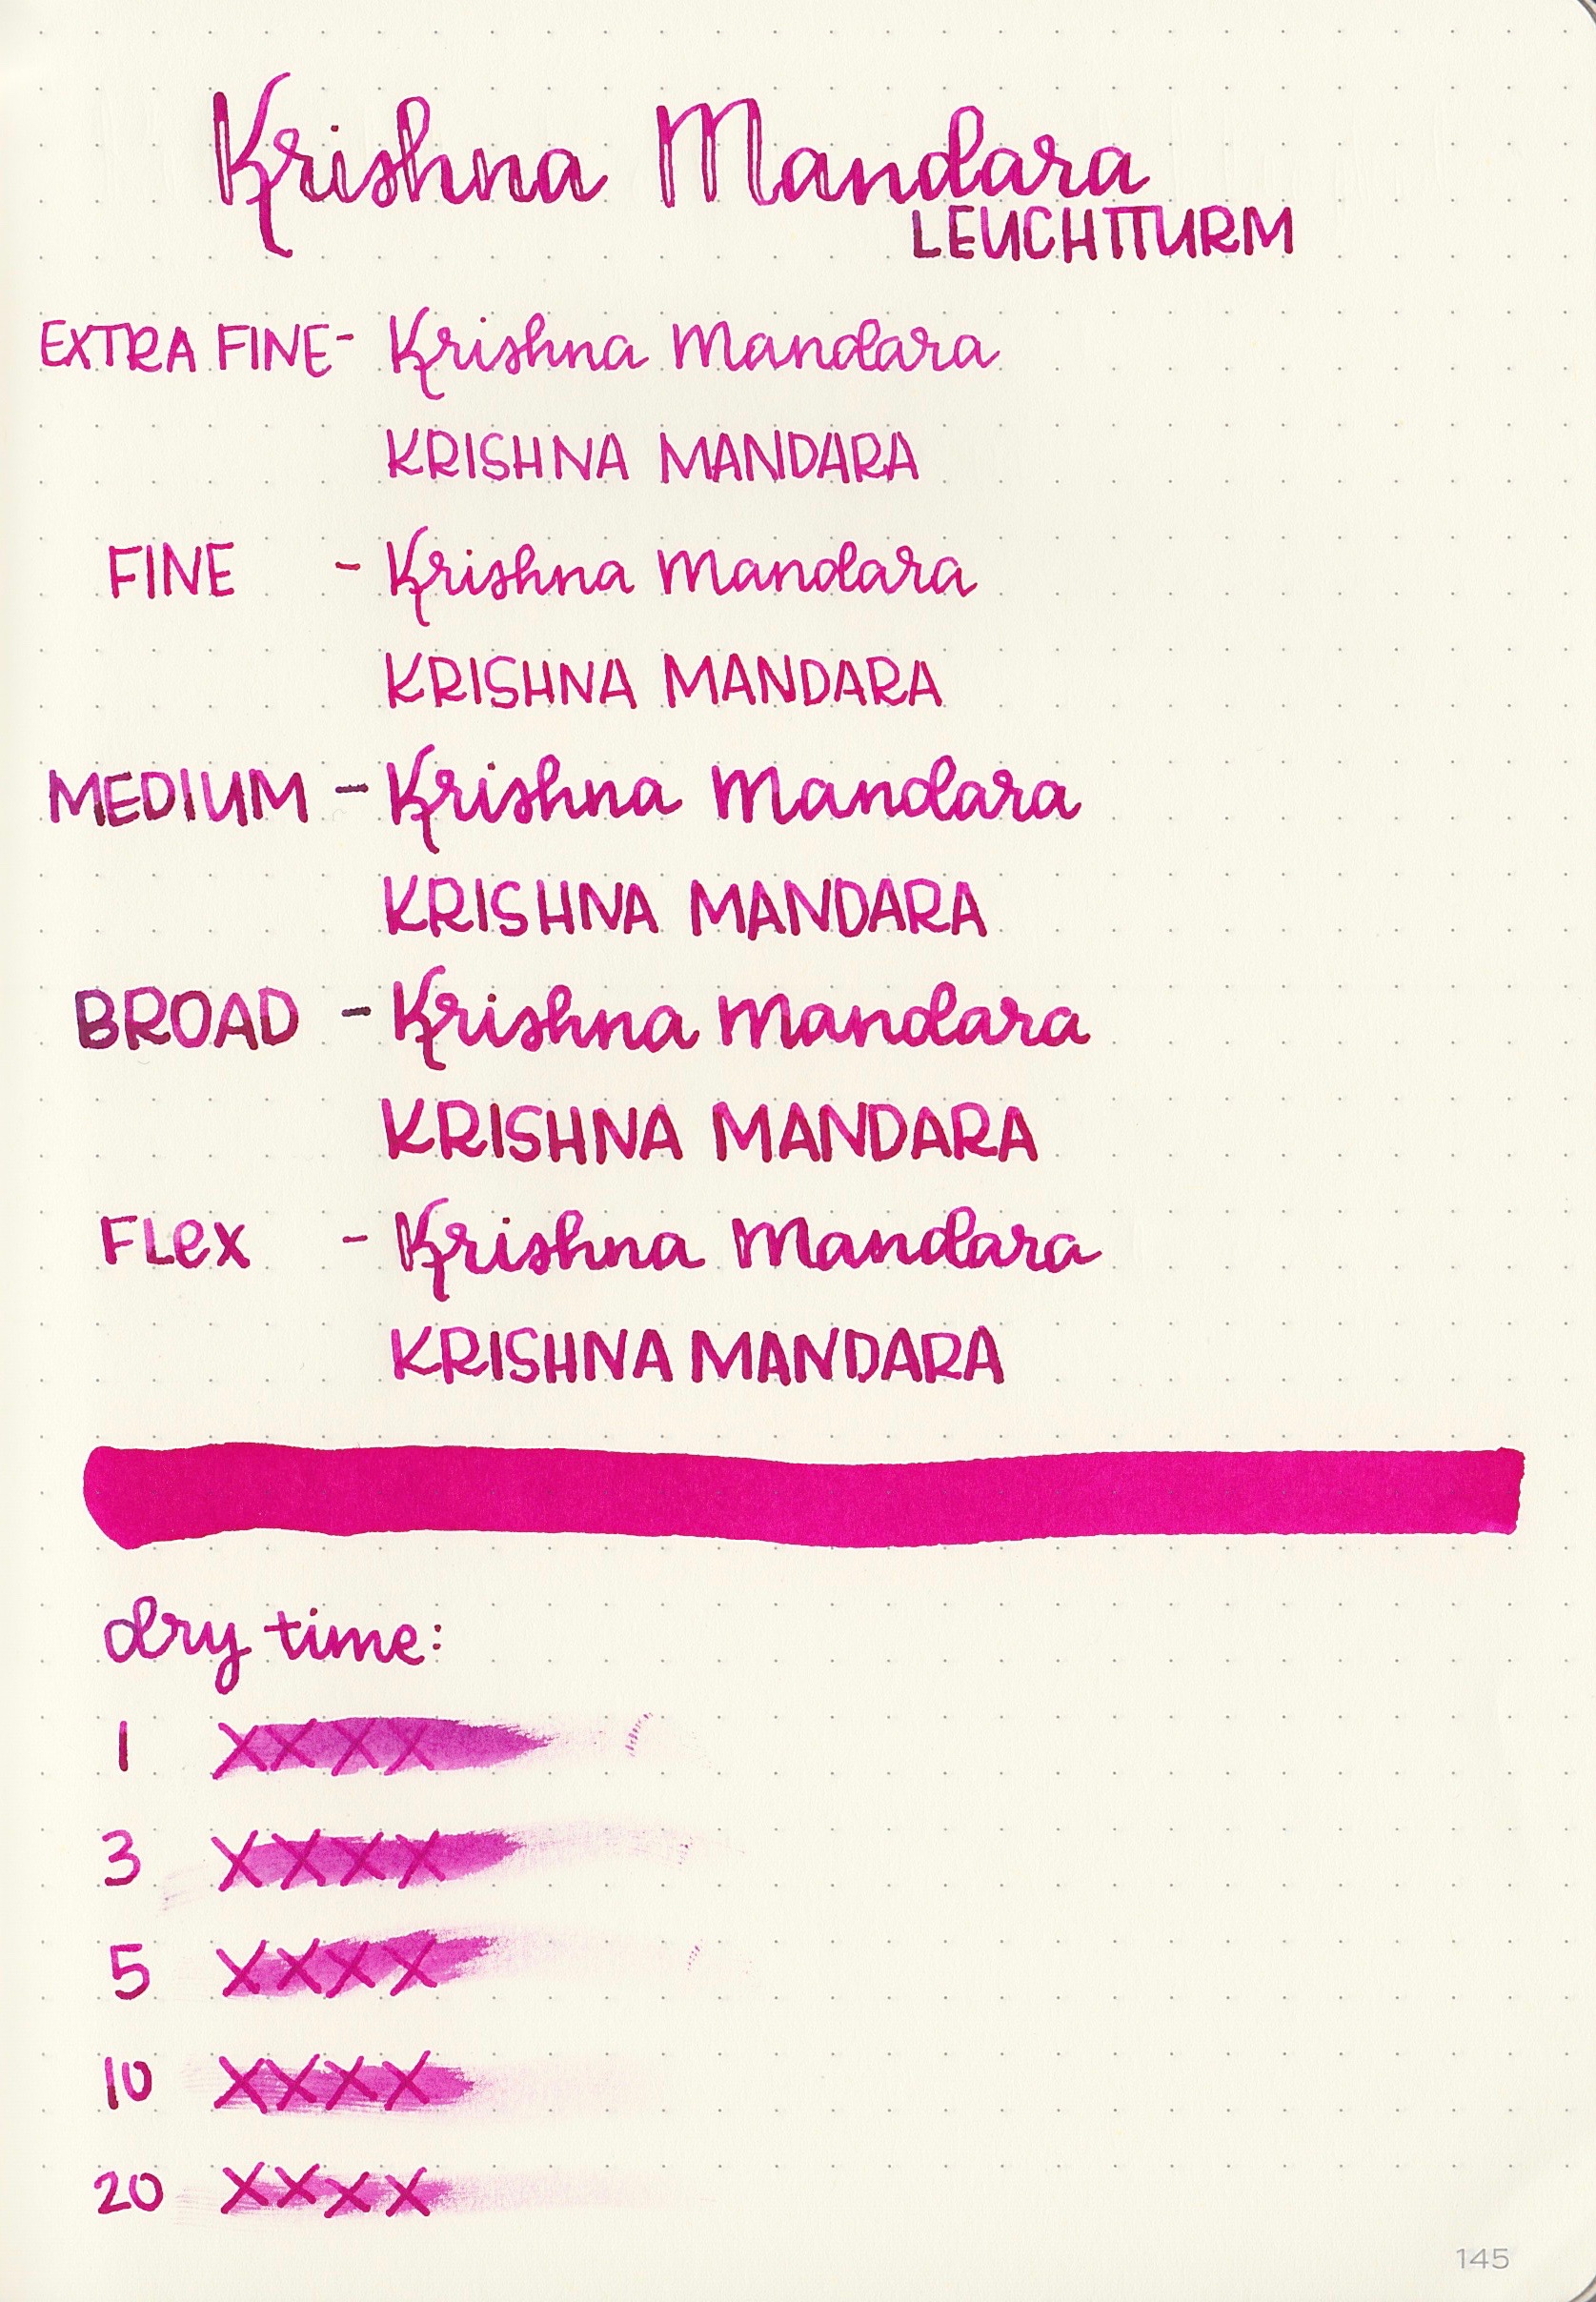 Krishna Mandara
LEUCHTTURM
EXTRA FINE - Krishna Mandara
KRISHNA MANDARA
FINE - Krishna Mandara
KRISHNA MANDARA
MEDIUM - Krishna Mandara
KRISHNA MANDARA
BROAD - Krishna Mandara
KRISHNA MANDARA
FLex - Krishna Mandara
KRISHNA MANDARA
dry time:
1 XXXX
3 XXXX
5 XXXX
10 XXXX
20 XXXX
145